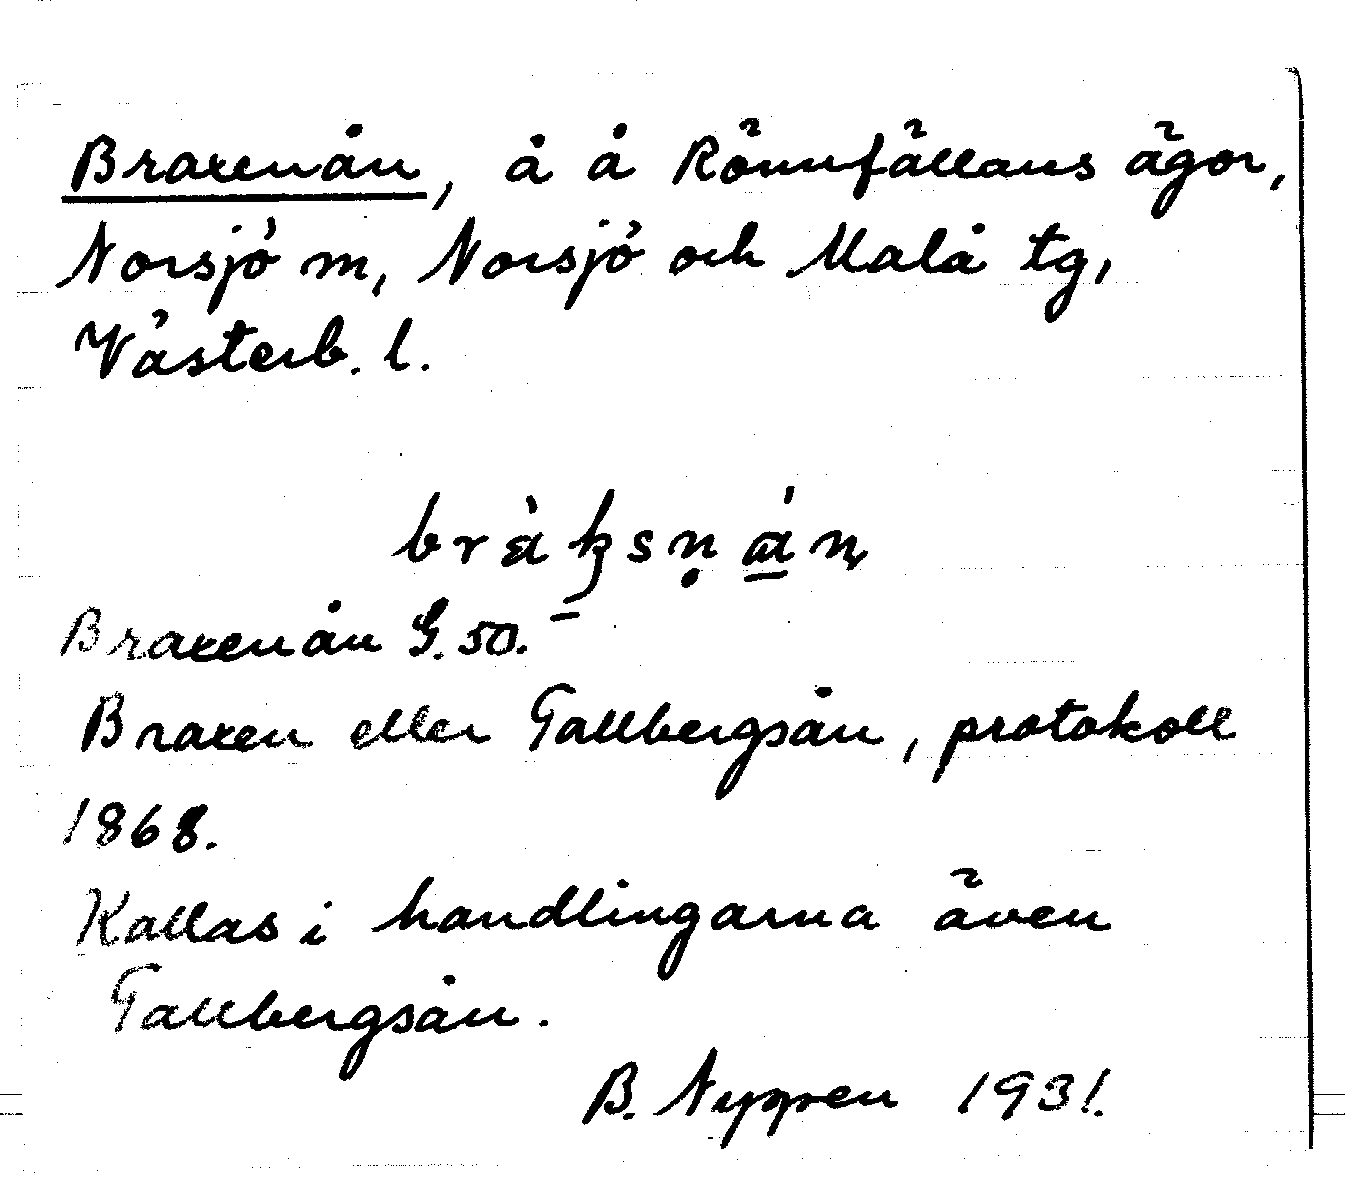 Braxenån, å å Rönnfällans ägor,
Norsjö m, Norsjö och Malå tg,
Västerb. l.
Braxenån G. 50.
Braxen eller Tallbergsån, protokoll
1868.
Kallas i handlingarna även
Tallbergsån.
B. 1931.